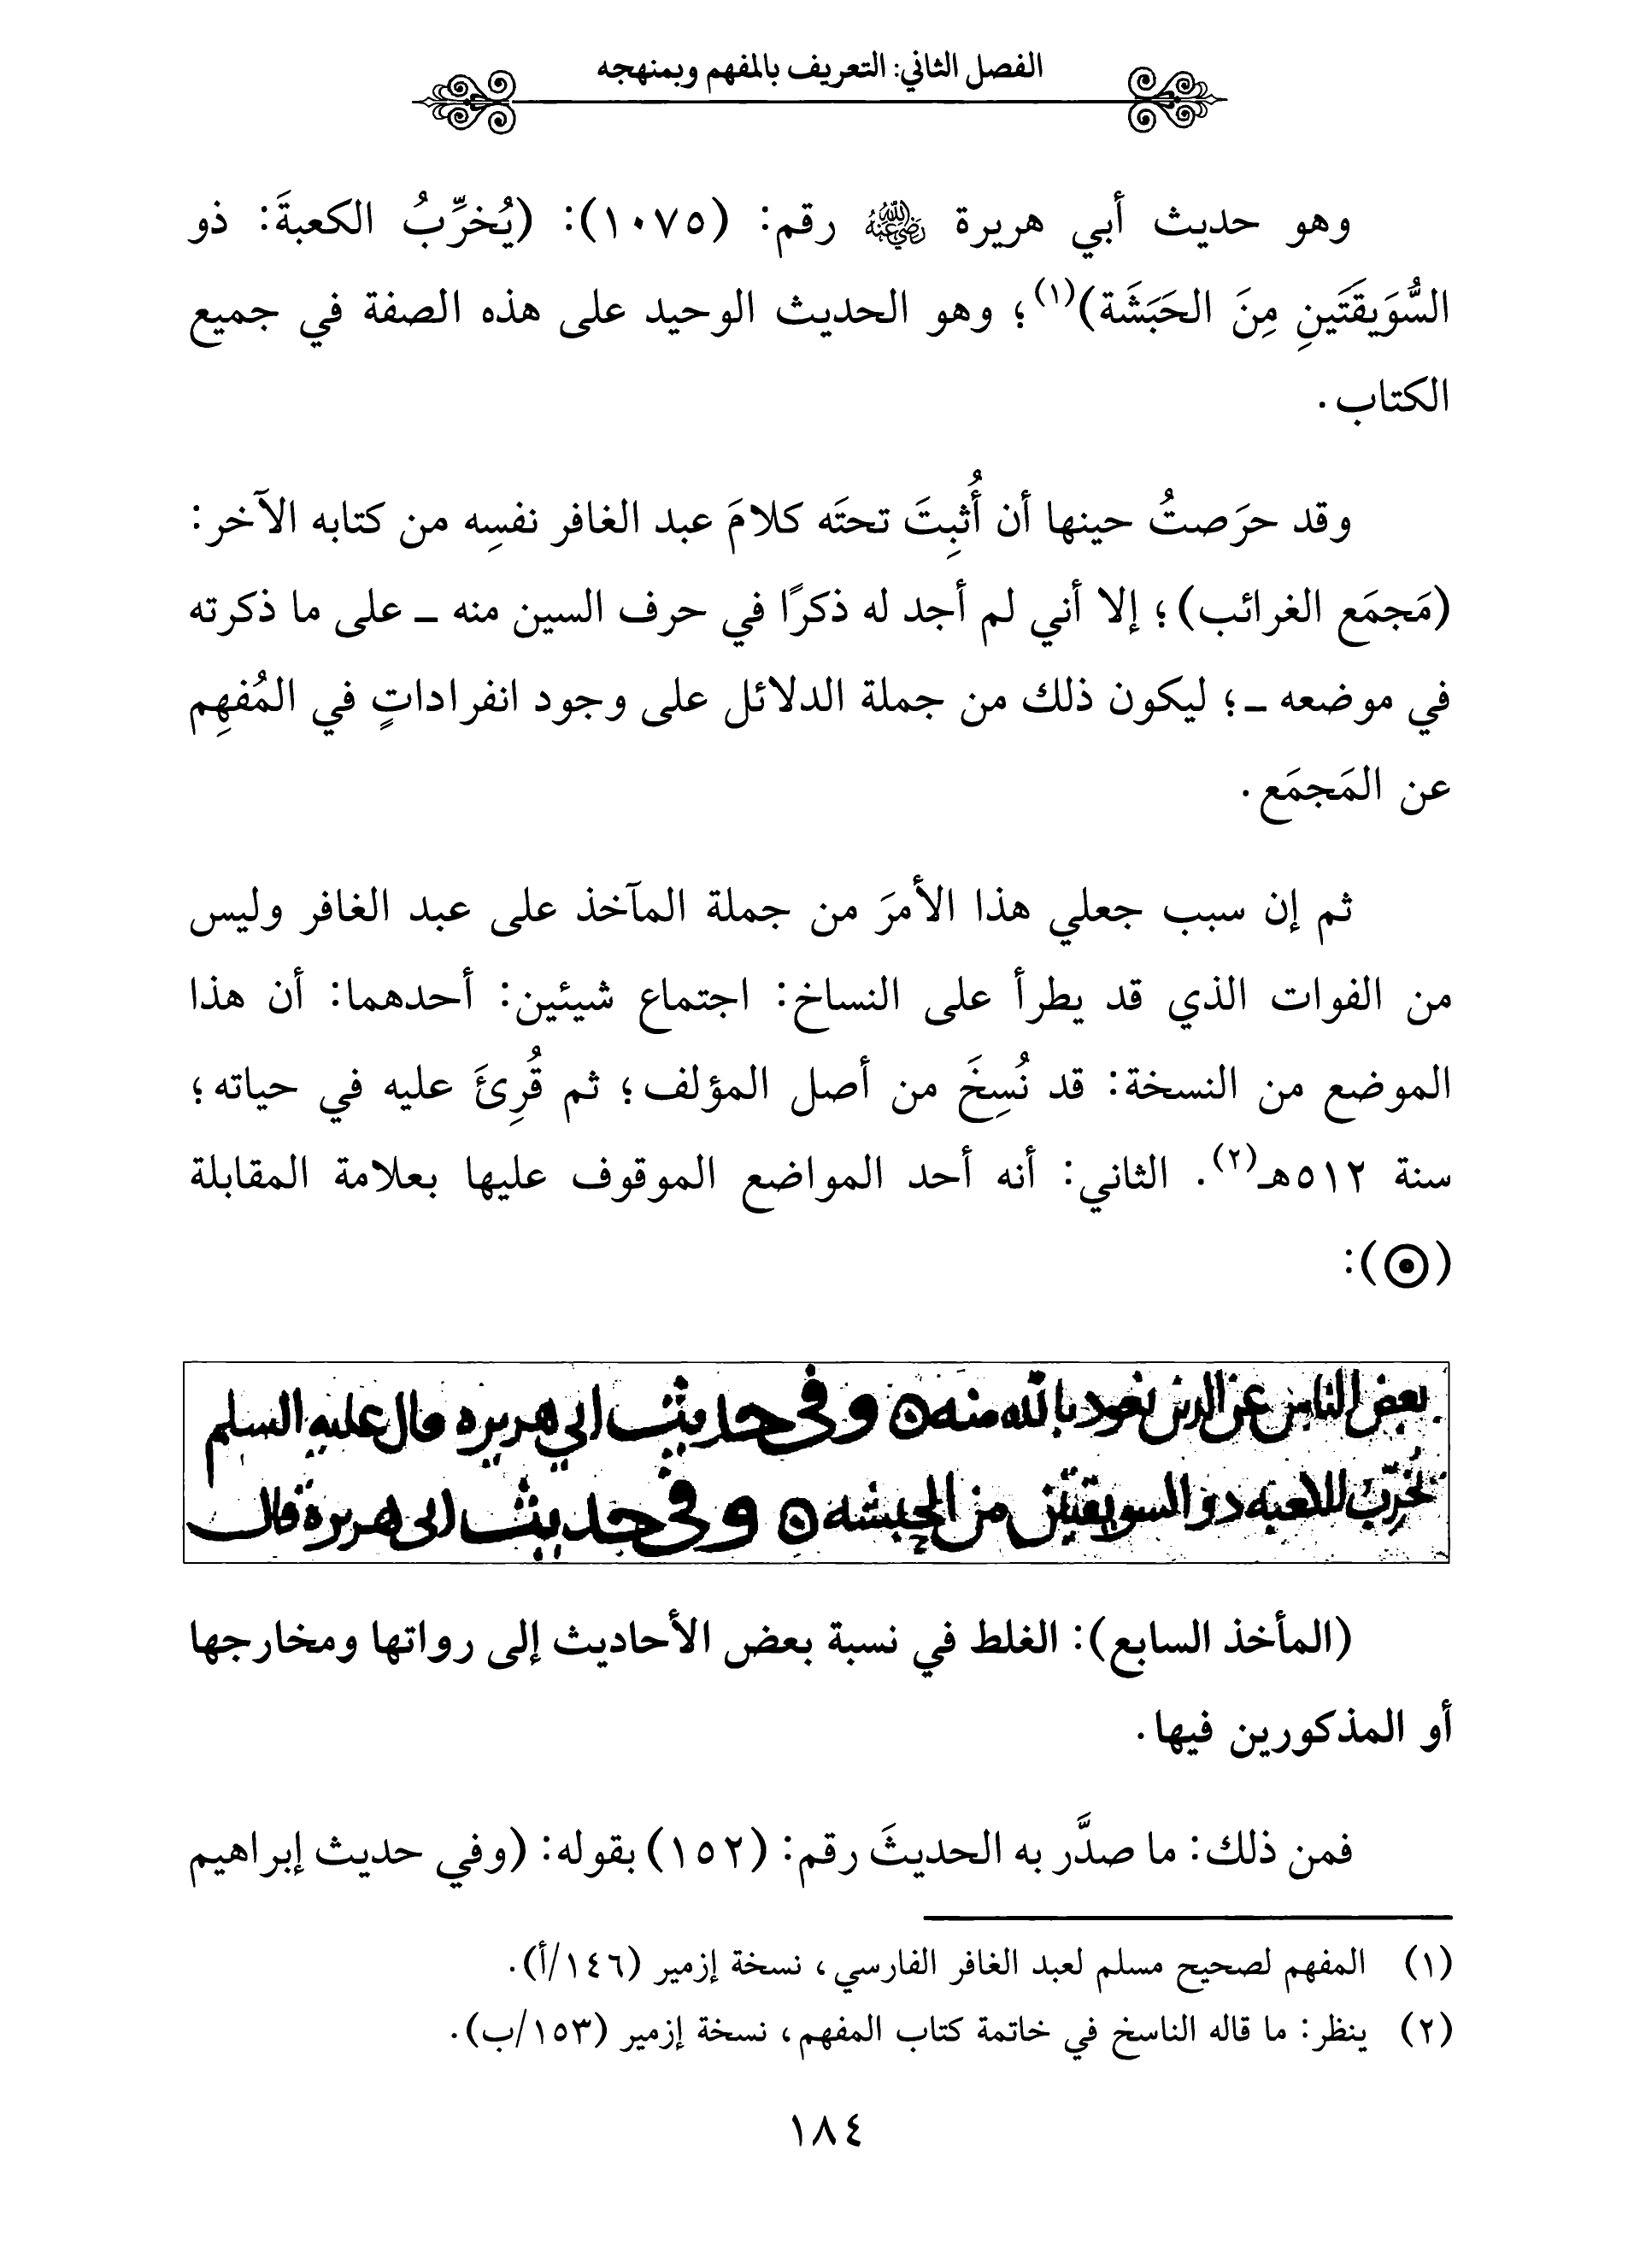 الفصل الثاني: التعريف بالمفهم وبمنهجه
وهو حديث أبي هريرة رضي الله عنه رقم: (١٠٧٥): (يُخرِّبُ الكعبةَ: ذو
السُّوَيقَتَينِ مِنَ الحَبَشَة)(١)؛ وهو الحديث الوحيد على هذه الصفة في جميع
الكتاب.
وقد حرَصتُ حينها أن أُثبِتَ تحتَه كلامَ عبد الغافر نفسِه من كتابه الآخر:
(مَجمَع الغرائب)؛ إلا أني لم أجد له ذكرًا في حرف السين منه ـ على ما ذكرته
في موضعه ـ؛ ليكون ذلك من جملة الدلائل على وجود انفراداتٍ في المُفهِم
عن المَجمَع.
ثم إن سبب جعلي هذا الأمرَ من جملة المآخذ على عبد الغافر وليس
من الفوات الذي قد يطرأ على النساخ: اجتماع شيئين: أحدهما: أن هذا
الموضع من النسخة: قد نُسِخَ من أصل المؤلف؛ ثم قُرِئَ عليه في حياته؛
سنة ٥١٢هـ(٢). الثاني: أنه أحد المواضع الموقوف عليها بعلامة المقابلة
(⊙):
بعض الناس عن الدين نعوذ بالله منه ⊙ وفي حديث ابي هريره قال عليه السلم
يُخَرِّبُ الكعبه ذو السويقتين من الحبشه ⊙ وفي حديث ابي هريرة قال
(المأخذ السابع): الغلط في نسبة بعض الأحاديث إلى رواتها ومخارجها
أو المذكورين فيها.
فمن ذلك: ما صدَّر به الحديثَ رقم: (١٥٢) بقوله: (وفي حديث إبراهيم
(١) المفهم لصحيح مسلم لعبد الغافر الفارسي، نسخة إزمير (١٤٦/أ).
(٢) ينظر: ما قاله الناسخ في خاتمة كتاب المفهم، نسخة إزمير (١٥٣/ب).
١٨٤